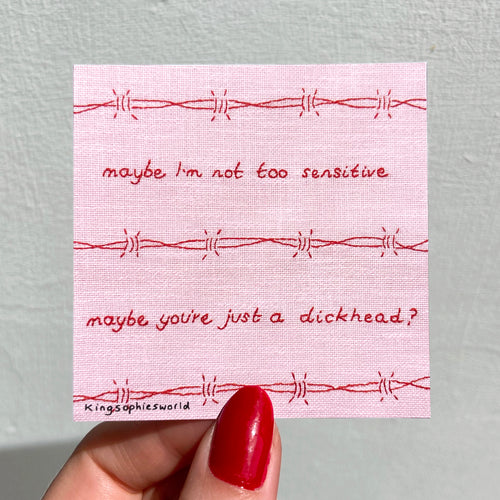 maybe I'm not too sensitive
maybe you're just a dickhead?
Kingsophiesworld